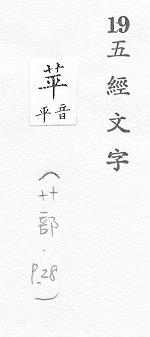 19 五經文字
苹
音平
（艹部．P.28）